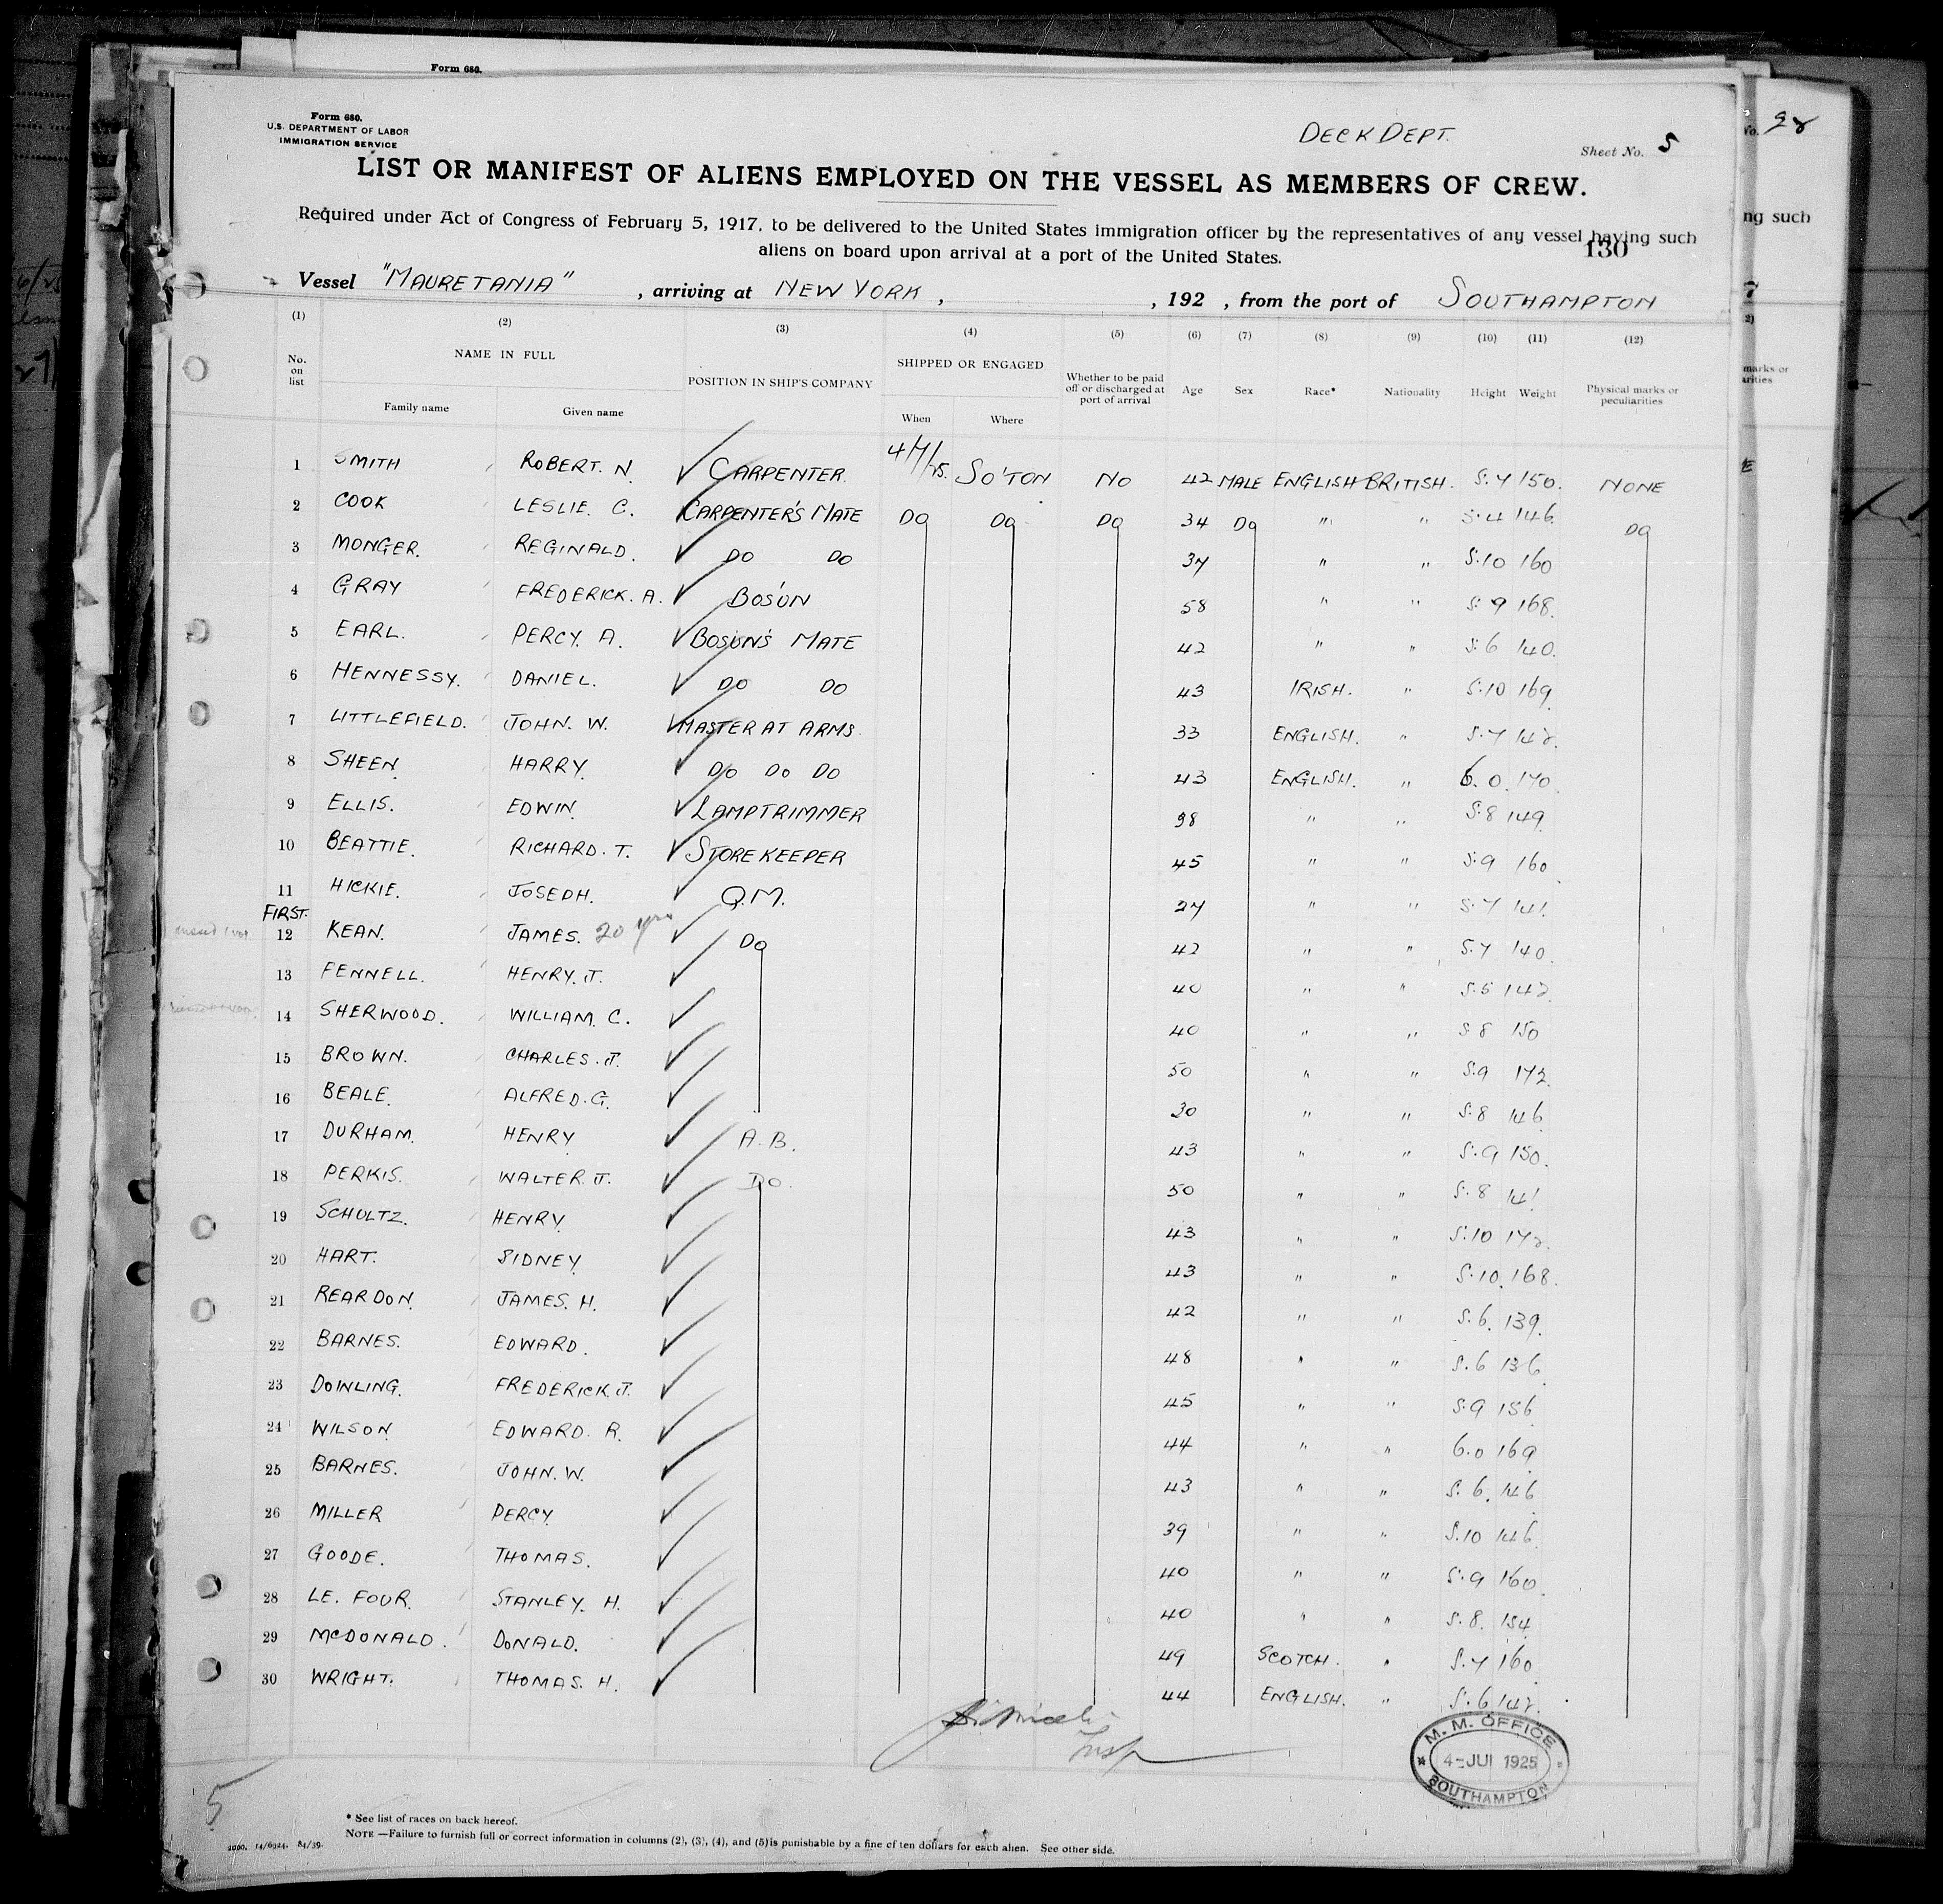 Form 680.
No. 28
Form 680.
U.S. DEPARTMENT OF LABOR
IMMIGRATION SERVICE
DECK DEPT.
Sheet No. 5
LIST OR MANIFEST OF ALIENS EMPLOYED ON THE VESSEL AS MEMBERS OF CREW.
Required under Act of Congress of February 5, 1917, to be delivered to the United States immigration officer by the representatives of any vessel having such
aliens on board upon arrival at a port of the United States.
130
ng such
Vessel "MAURETANIA" , arriving at NEW YORK , , 192 , from the port of SOUTHAMPTON
(1) (2) (3) (4) (5) (6) (7) (8) (9) (10) (11) (12)
No. on list NAME IN FULL POSITION IN SHIP'S COMPANY SHIPPED OR ENGAGED Whether to be paid off or discharged at port of arrival Age Sex Race* Nationality Height Weight Physical marks or peculiarities
Family name Given name When Where
marks or
arities
1 SMITH ROBERT. N. CARPENTER. 4/7/25. SO'TON NO 42 MALE ENGLISH BRITISH. 5.7 150. NONE
2 COOK LESLIE. C. CARPENTER'S MATE DO DO DO 34 DO " " 5.4 146. DO
3 MONGER. REGINALD. DO DO 37 " " 5.10 160
4 GRAY FREDERICK. A. BOS'UN 58 " " 5.9 168.
5 EARL. PERCY. A. BOSUN'S MATE 42 " " 5.6 140.
6 HENNESSY. DANIEL. DO DO 43 IRISH. " 5.10 169.
7 LITTLEFIELD. JOHN. W. MASTER AT ARMS. 33 ENGLISH. " 5.7 142.
8 SHEEN. HARRY. DO DO DO 43 ENGLISH. " 6.0. 170.
9 ELLIS. EDWIN. LAMPTRIMMER 38 " " 5.8 149.
10 BEATTIE. RICHARD. T. STOREKEEPER 45 " " 5.9 160.
11 HICKIE. JOSEPH. Q.M. 27 " " 5.7 141.
FIRST.
12 KEAN. JAMES. 20 yrs DO 42 " " 5.7 140.
13 FENNELL. HENRY. J. 40 " " 5.5 142.
14 SHERWOOD. WILLIAM. C. 40 " " 5.8 150
15 BROWN. CHARLES. J. 50 " " 5.9 172.
16 BEALE. ALFRED. G. 30 " " 5.8 146.
17 DURHAM. HENRY A.B. 43 " " 5.9 150.
18 PERKIS. WALTER. J. DO. 50 " " 5.8 141
19 SCHULTZ. HENRY. 43 " " 5.10 172.
20 HART. SIDNEY 43 " " 5.10. 168.
21 REARDON. JAMES. H. 42 " " 5.6. 139.
22 BARNES. EDWARD. 48 " " 5.6 136.
23 DOWLING. FREDERICK. J. 45 " " 5.9 156
24 WILSON. EDWARD. R. 44 " " 6.0 169
25 BARNES. JOHN. W. 43 " " 5.6. 146
26 MILLER PERCY 39 " " 5.10 146.
27 GOODE. THOMAS. 40 " " 5.9 160.
28 LE. FOUR. STANLEY. H. 40 " " 5.8. 154.
29 McDONALD. DONALD. 49 SCOTCH. " 5.7 160
30 WRIGHT. THOMAS. H. 44 ENGLISH. " 5.6 142.
Insp
M. M. OFFICE
4-JUL 1925
SOUTHAMPTON
5
* See list of races on back hereof.
NOTE —Failure to furnish full or correct information in columns (2), (3), (4), and (5) is punishable by a fine of ten dollars for each alien. See other side.
2000. 14/6924. 84/39.